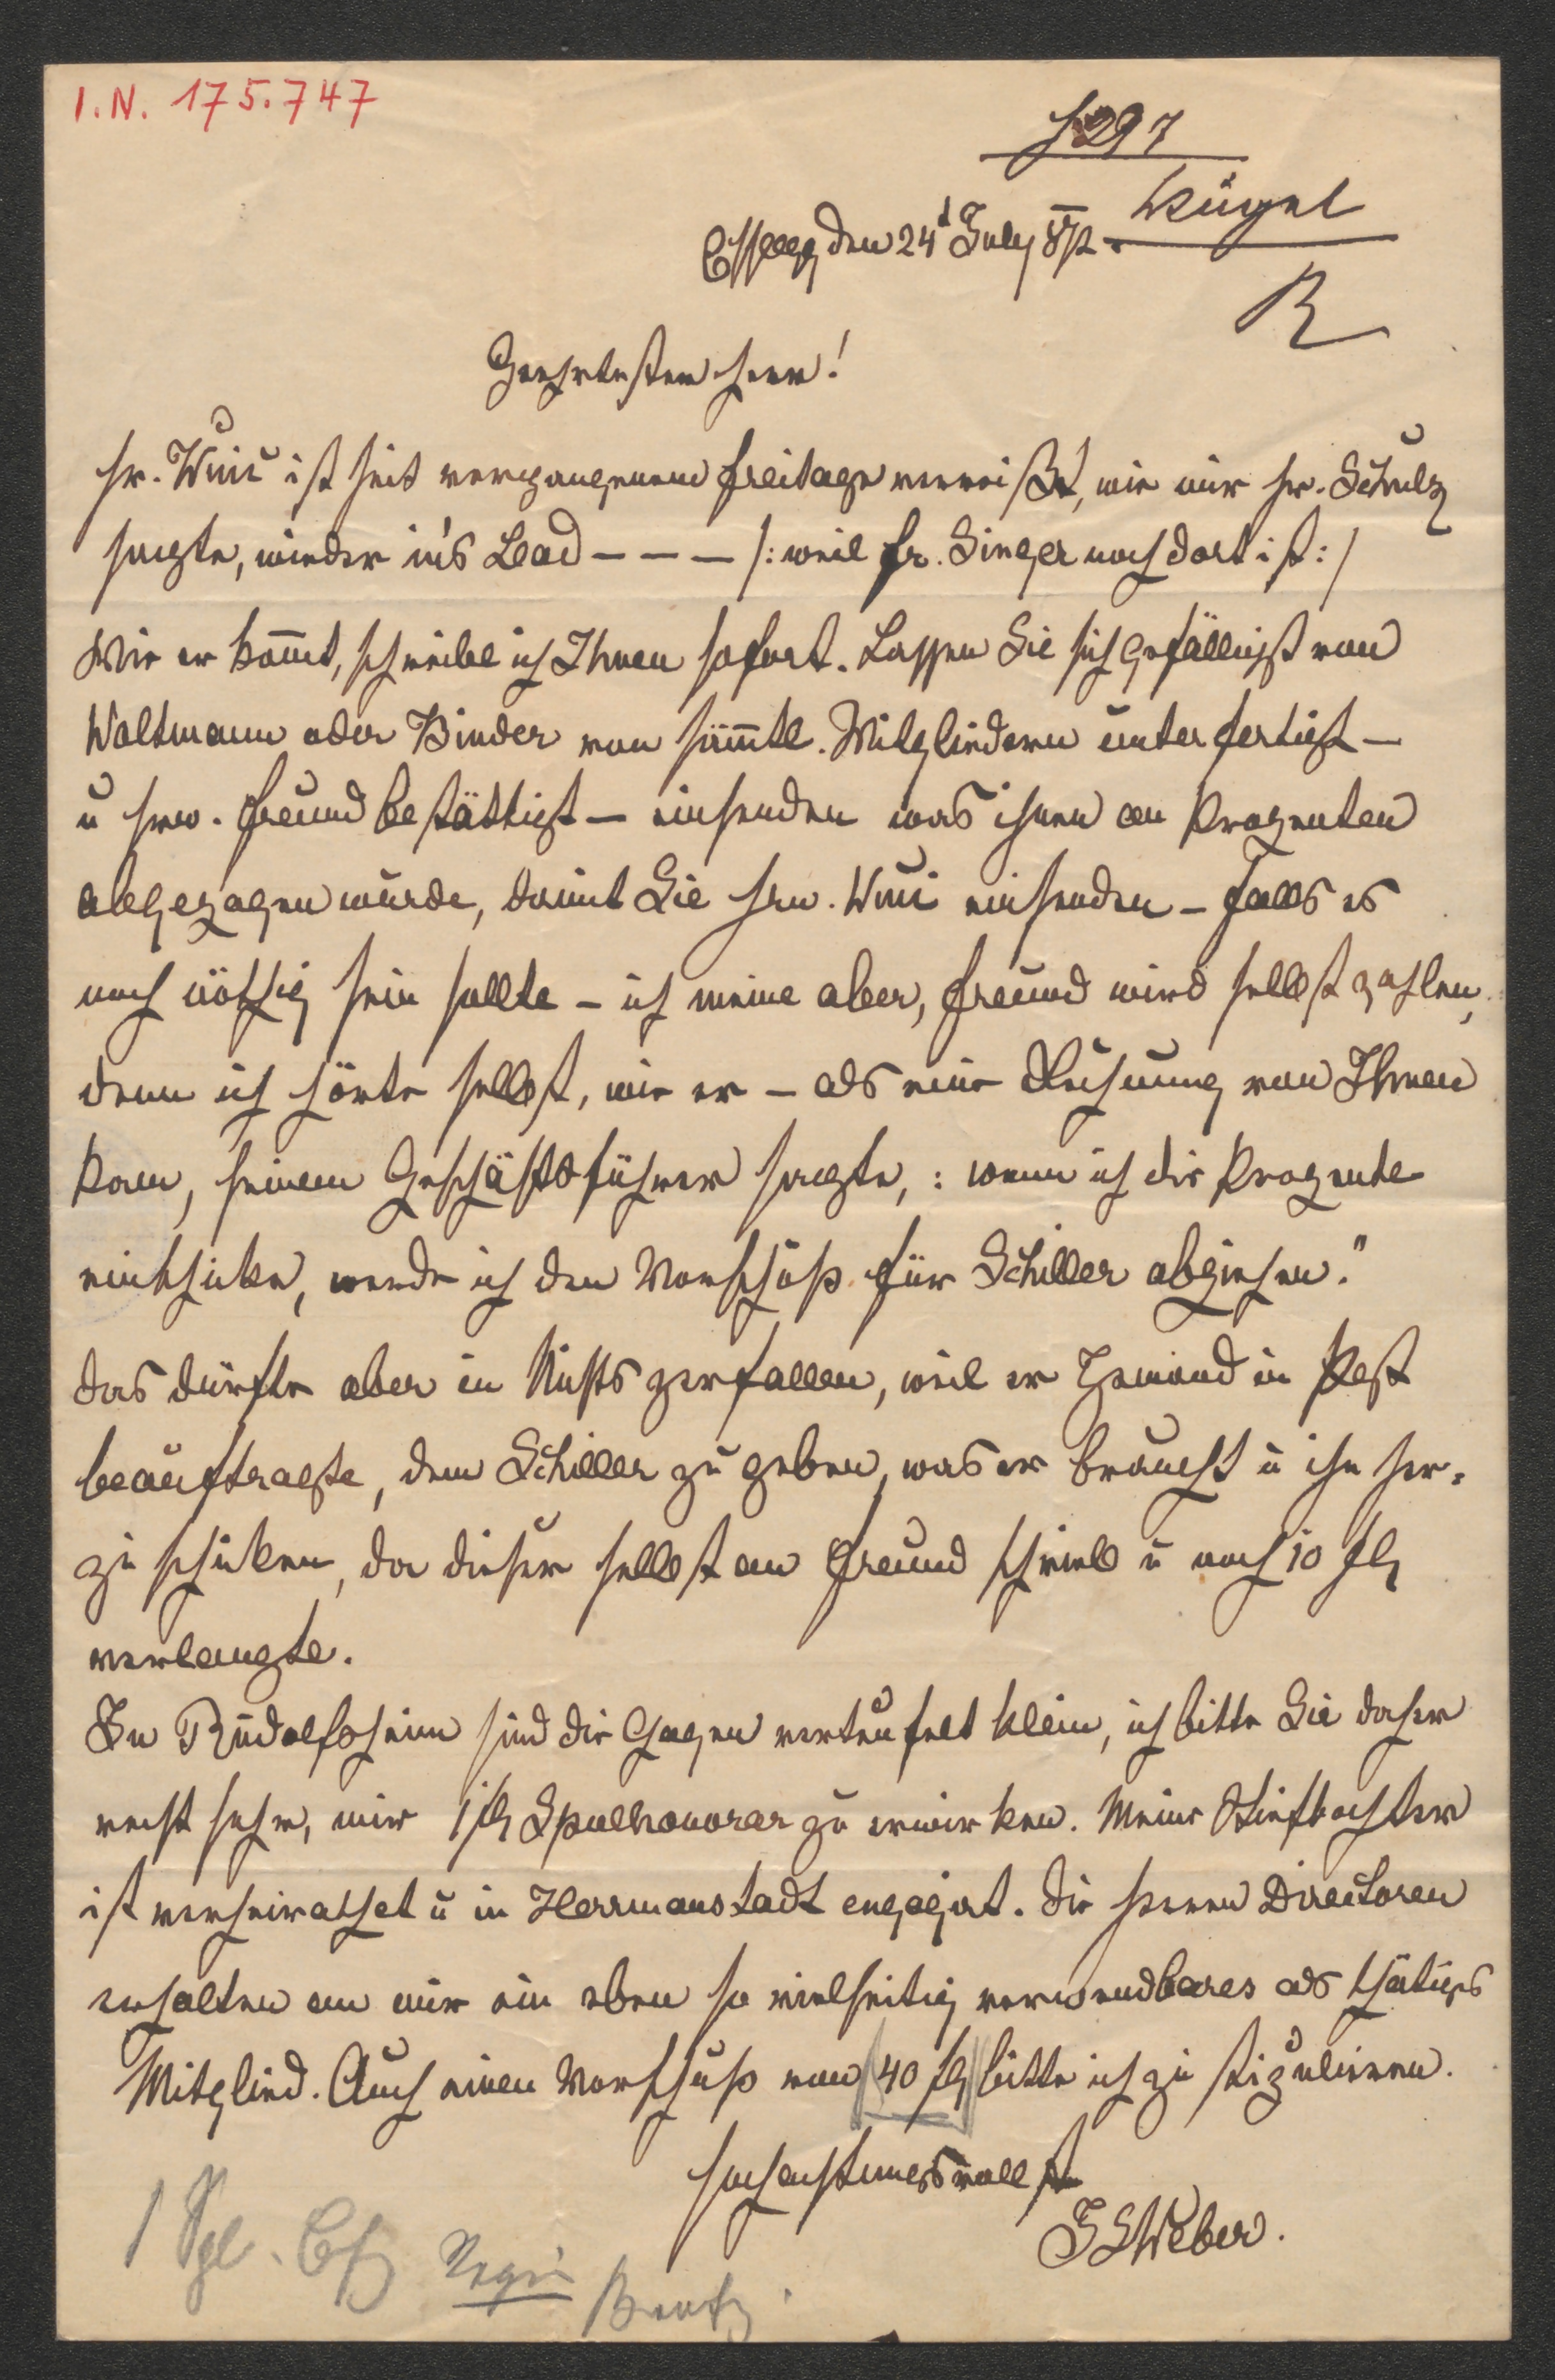 I.N. 175.747
Kügel
R
Essegg den 24t July 872.
Geehrtester Herr!
Hr. Wui ist seit vergangenem Freitage verreißt, wie mir Hr. Schulz
sagte, wieder in's Bad – – – /: weil Fr. Singer noch dort ist :/
Wie er kom̄t, schreibe ich Ihnen sofort. Lassen Sie sich gefälligst von
Waltmann oder Binder von säm̄tl. Mitgliedern unterfertigt –
u Hrn. Freund bestättigt – einsenden was ihnen an Prozenten
abgezogen wurde, damit Sie Hrn. Wui einsenden – falls es
noch nöthig sein sollte – ich meine aber, Freund wird selbst zahlen,
denn ich hörte selbst, wie er – als eine Rechnung von Ihnen
kam, seinem Geschäftsführer sagte,: wenn ich die Prozente
einschicke, werde ich den Vorschuß für Schiller abziehen."
Das dürfte aber in Nichts zerfallen, weil er Jemand in Pest
beauftragte, dem Schiller zu geben, was er braucht u ihn her=
zu schicken, da dieser selbst an Freund schrieb u noch 10 fl
verlangte.
In Rudolfsheim sind die Gagen verteufelt klein, ich bitte Sie daher
recht sehr, mir 1 fl Spielhonorar zu erwirken. Meine Stieftochter
ist verheirathet u in Herrmanstadt engagirt. Die Herren Directoren
erhalten an mir ein eben so vielseitig verwendbares als thätiges
Mitglied. Auch einen Vorschuß von 40 fl bitte ich zu stipulieren.
Hochachtungsvollst
JSWeber.
1 Spl.